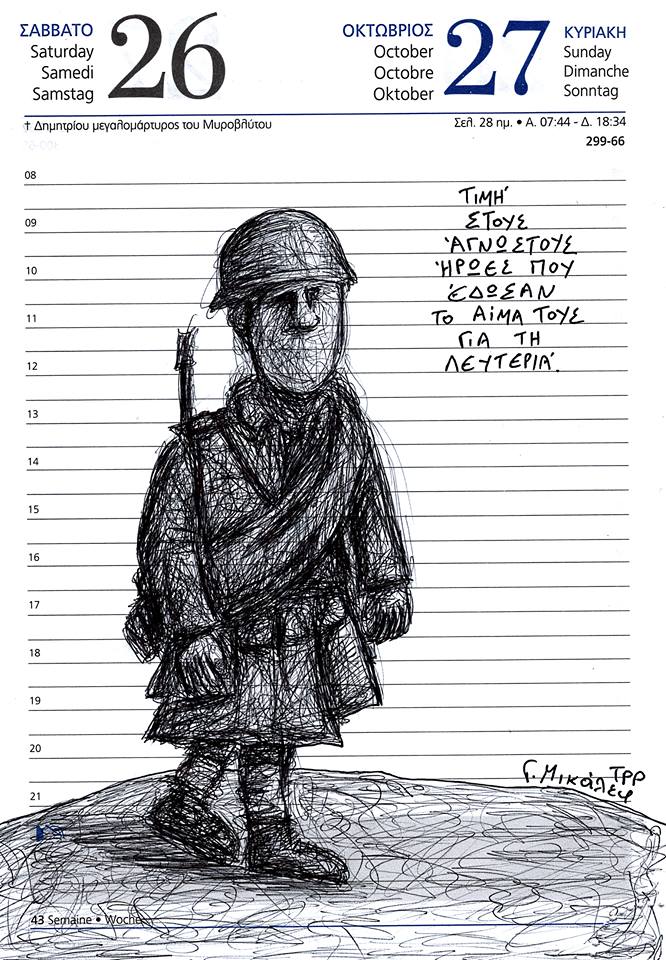 ΣΑΒΒΑΤΟ
Saturday
Samedi
Samstag
26
ΟΚΤΩΒΡΙΟΣ
October
Octobre
Oktober
27
ΚΥΡΙΑΚΗ
Sunday
Dimanche
Sonntag
† Δημητρίου μεγαλομάρτυρος του Μυροβλύτου
Σελ. 28 ημ. • Α. 07:44 - Δ. 18:34
299-66
08
09
10
11
12
13
14
15
16
17
18
19
20
21
ΤΙΜΉ
ΣΤΟΥΣ
ΆΓΝΩΣΤΟΥΣ
ΉΡΩΕΣ ΠΟΥ
ΈΔΩΣΑΝ
ΤΟ ΑΊΜΑ ΤΟΥΣ
ΓΙΑ ΤΗ
ΛΕΥΤΕΡΙΆ.
Γ. Μικάλεφ
43 Semaine • Woche